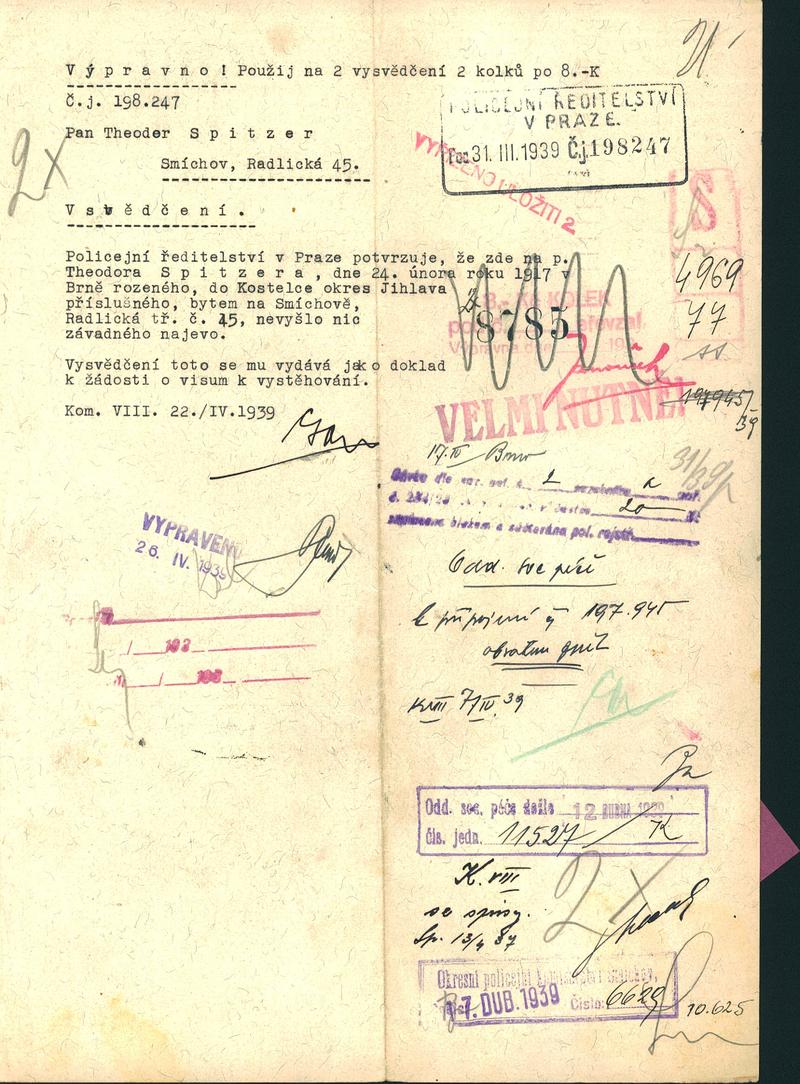 V ý p r a v n o ! Použij na 2 vysvědčení 2 kolků po 8.-K
Č.j. 198.247
Pan Theodor S p i t z e r
Smíchov, Radlická 45.
V s vě d č e n í .
Policejní ředitelství v Praze potvrzuje, že zde na p.
Theodora S p i t z e r a , dne 24. února roku 1917 v
Brně rozeného, do Kostelce okres Jihlava
příslušného, bytem na Smíchově,
Radlická tř. č. 45, nevyšlo nic
závadného najevo.
Vysvědčení toto se mu vydává jako doklad
k žádosti o visum k vystěhování.
Kom. VIII. 22./IV.1939
VYPRAVENO
26. IV. 1939
193
193
2x
POLICEJNÍ ŘEDITELSTVÍ
V PRAZE.
31. III. 1939 Čj.198247
ULOŽITI 2
S
4969
77
KOLEK
8785
VELMI NUTNÉ!
197945/
39
17.IV Brno
Odd. soc péče
k připojení č 197.945
obratem zpět
K VIII 7/IV 39
Odd. soc. péče došlo 12 DUBNA 1939
čís. jedn. 11527 / K
K. VIII
se spisy.
2x
Okresní policejní
17. DUB. 1939 Číslo: 6629
10.625